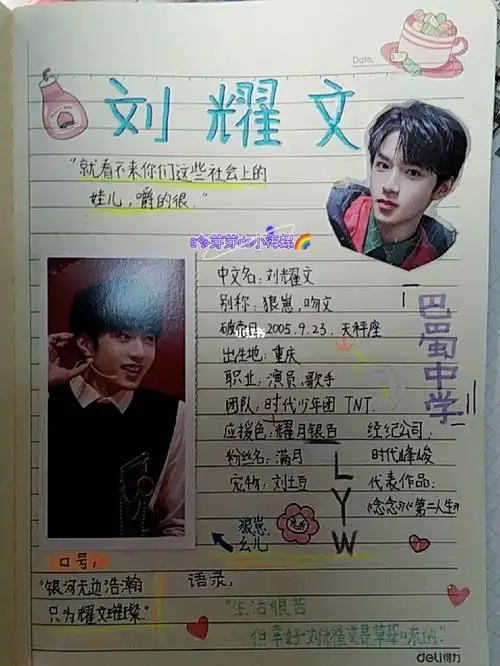 Date.
刘耀文
"就看不来你们这些社会上的
娃儿,嚼的很."
芽芽de小海螺🌈
中文名:刘耀文
别称:狼崽,吻文
破壳日:2005.9.23.天秤座
出生地:重庆
职业:演员.歌手
团队:时代少年团 TNT.
应援色:耀月银白
粉丝名:满月
宠物:刘土豆
巴蜀中学
经纪公司:
时代峰峻
代表作品:
《念念》《第二人生》
LYW
狼崽,
幺儿
口号:
"银河无边浩瀚
只为耀文璀璨."
语录:
"生活很苦
但幸好刘耀文是草莓味的."
deli得力